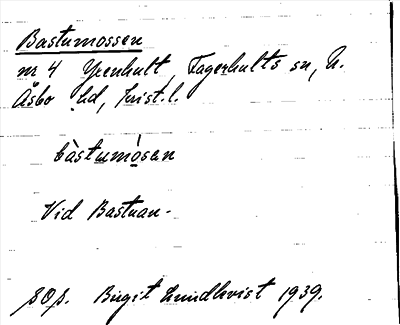 Bastumossen
nr 4 Yxenhult, Fagerhults sn, N.
Åsbo hd, Krist. l.
bàstumósen
Vid Bastuan.
Birgit Lundkvist 1939.